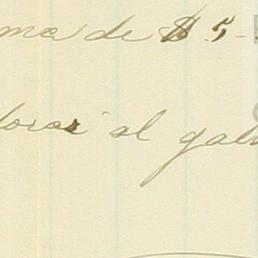 ma de $ 5-
doras al galv